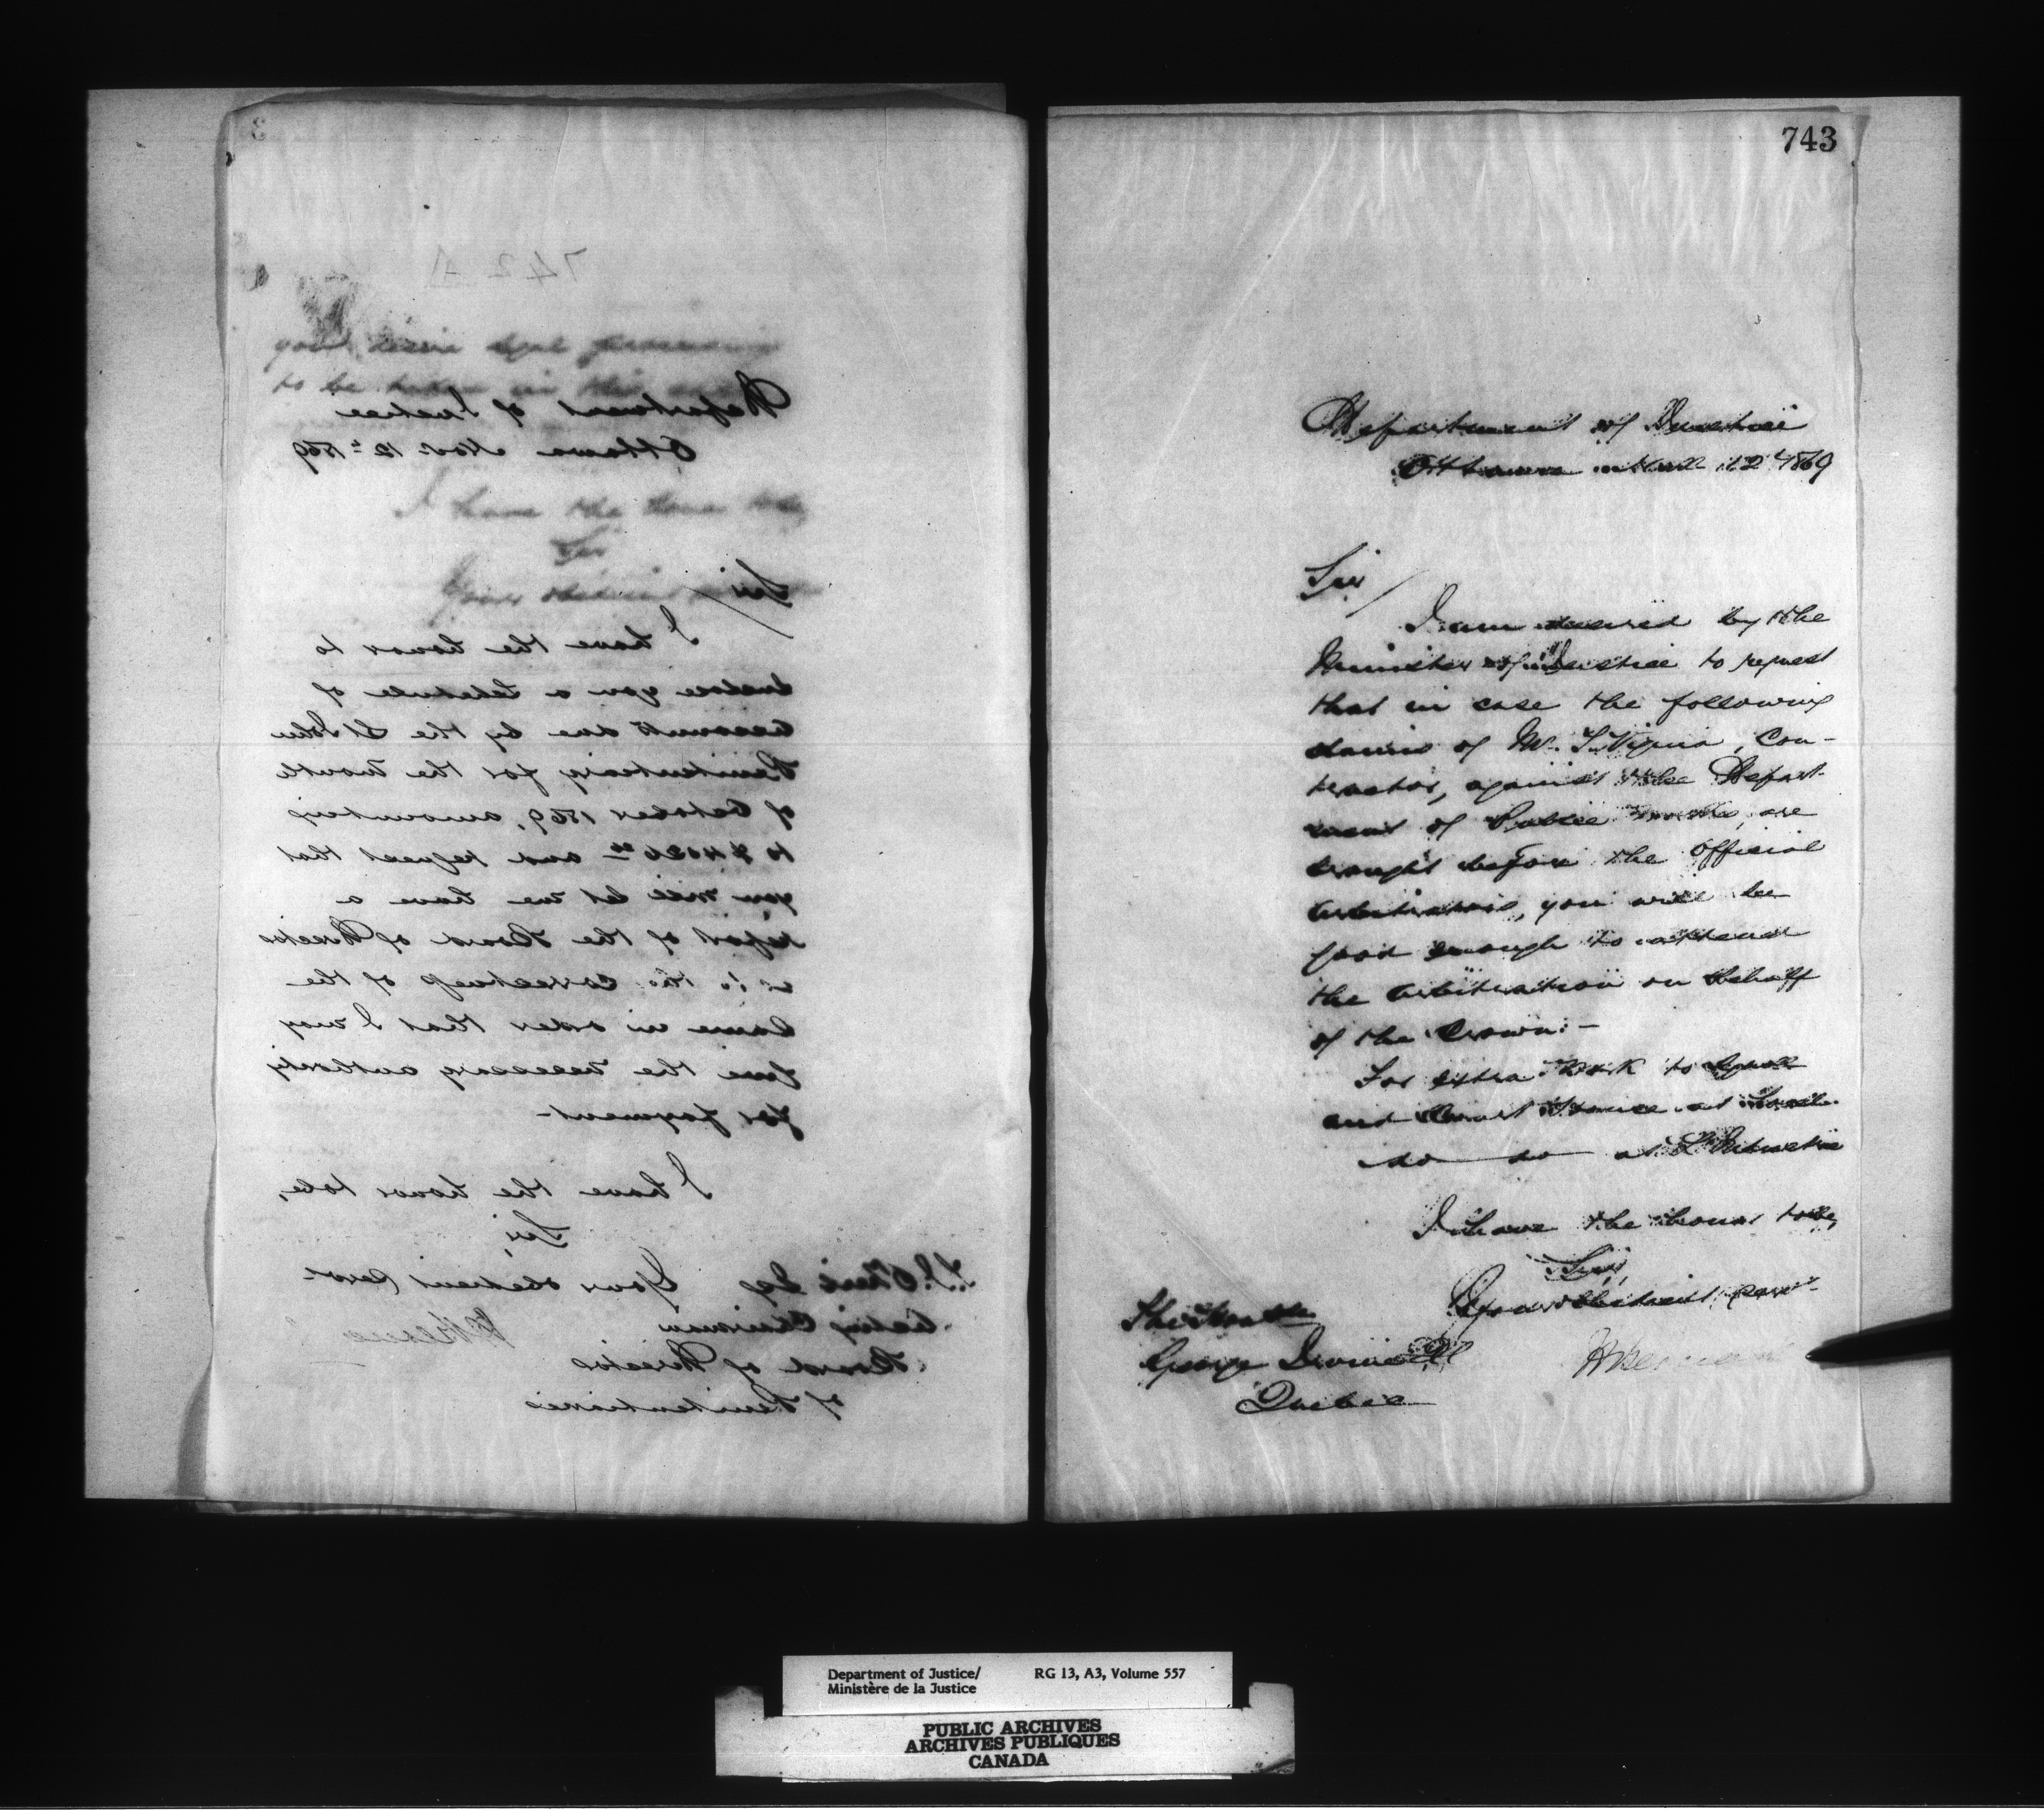 742 A
Department of Justice
Ottawa Nov 12th 1869
Sir
I have the honor to
enclose you a Schedule of
accounts due by the St John
Penitentiary for the month
of October 1869, amounting
to and request that
you will let me have a
report of the Board of Directors
as to the correctness of the
same in order that I may
give the necessary authority
for payment-
I have the honor to be,
Sir,
Your obedient Servt
Esq
Acting Chairman
Board of Directors
of Penitentiaries
to be taken in this
I have the honor to be
Sir
743
Department of Justice
Ottawa 12 1869
Sir
I am desired by the
Minister of Justice to request
that in case the following
claims of Mr. Con-
tractor, against the Depart-
ment of Public Works, are
brought before the Official
Arbitrators, you will be
good enough to attend
the Arbitration on behalf
of the Crown:-
For extra work to
and Court House at
do do at
I have the honor to be,
Sir,
Your obedient servt
The Honble
George Irvine
Quebec
Department of Justice/ RG 13, A3, Volume 557
Ministère de la Justice
PUBLIC ARCHIVES
ARCHIVES PUBLIQUES
CANADA